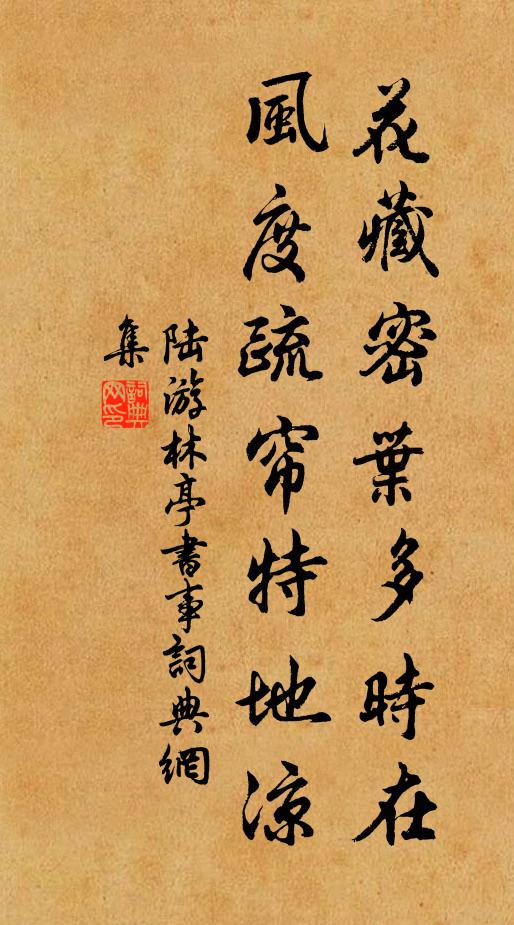 花藏密葉多時在
風度疏帘特地涼
陆游林亭書事詞典網
集
詞典
网印